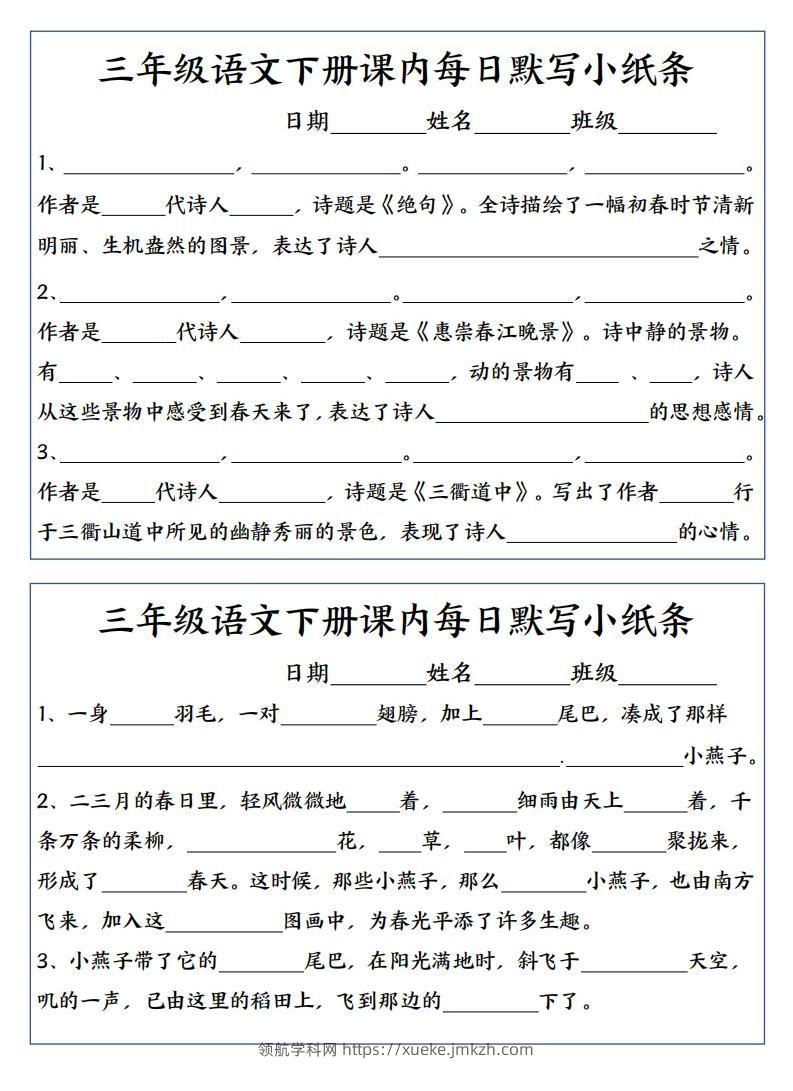 三年级语文下册课内每日默写小纸条
日期________姓名________班级________
1、________________，______________。______________，________________。
作者是______代诗人______，诗题是《绝句》。全诗描绘了一幅初春时节清新
明丽、生机盎然的图景，表达了诗人______________________________之情。
2、_______________，_______________。________________，_______________。
作者是_______代诗人________，诗题是《惠崇春江晚景》。诗中静的景物。
有_____、______、______、______、______，动的景物有____ 、____，诗人
从这些景物中感受到春天来了，表达了诗人____________________的思想感情。
3、_______________，________________。_______________，_______________。
作者是_____代诗人__________，诗题是《三衢道中》。写出了作者_______行
于三衢山道中所见的幽静秀丽的景色，表现了诗人________________的心情。
三年级语文下册课内每日默写小纸条
日期________姓名________班级________
1、一身______羽毛，一对_________翅膀，加上_______尾巴，凑成了那样
_________________________________________________.___________小燕子。
2、二三月的春日里，轻风微微地_____着，_______细雨由天上______着，千
条万条的柔柳，______________花，____草，____叶，都像_______聚拢来，
形成了________春天。这时候，那些小燕子，那么________小燕子，也由南方
飞来，加入这___________图画中，为春光平添了许多生趣。
3、小燕子带了它的________尾巴，在阳光满地时，斜飞于__________天空，
叽的一声，已由这里的稻田上，飞到那边的_________下了。
领航学科网 https://xueke.jmkzh.com